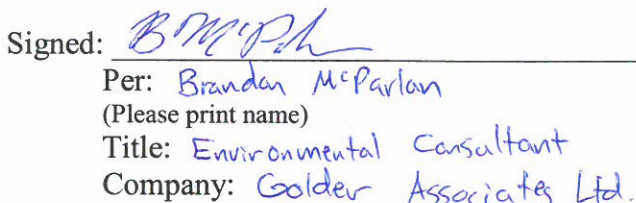 Signed: B McP
Per: Brandon McParlon
(Please print name)
Title: Environmental Consultant
Company: Golder Associates Ltd.